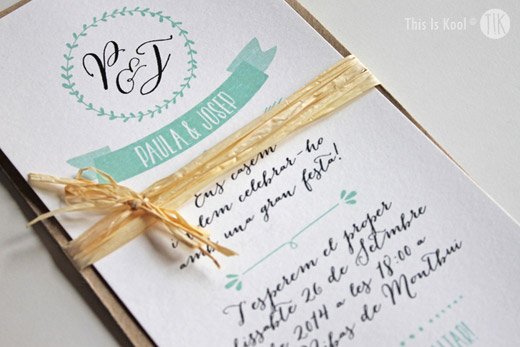 This Is Kool © TIK
P&J
PAULA & JOSEP
Ens casem
i volem celebrar-ho
amb una gran festa!
T'esperem el proper
dissabte 26 de Setmbre
de 2014 a les 18:00 a
Ribas de Montbui